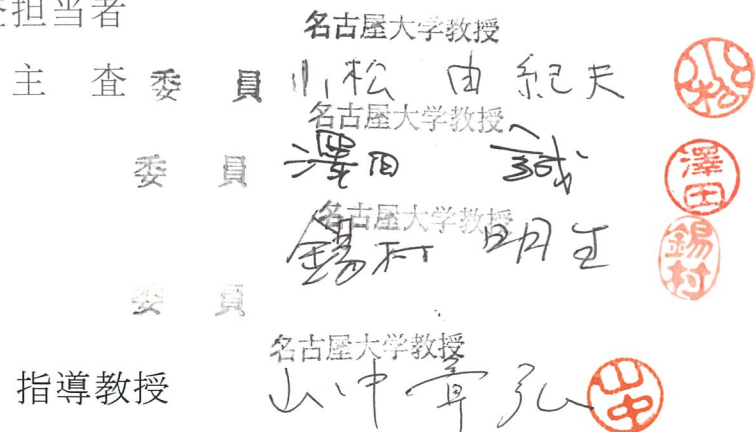 査担当者
名古屋大学教授
主 査 委 員 小松 由紀夫 小松
名古屋大学教授
委 員 澤田 誠 澤田
名古屋大学教授
錫村 明生 錫村
委 員
名古屋大学教授
指導教授 山中章弘 山中